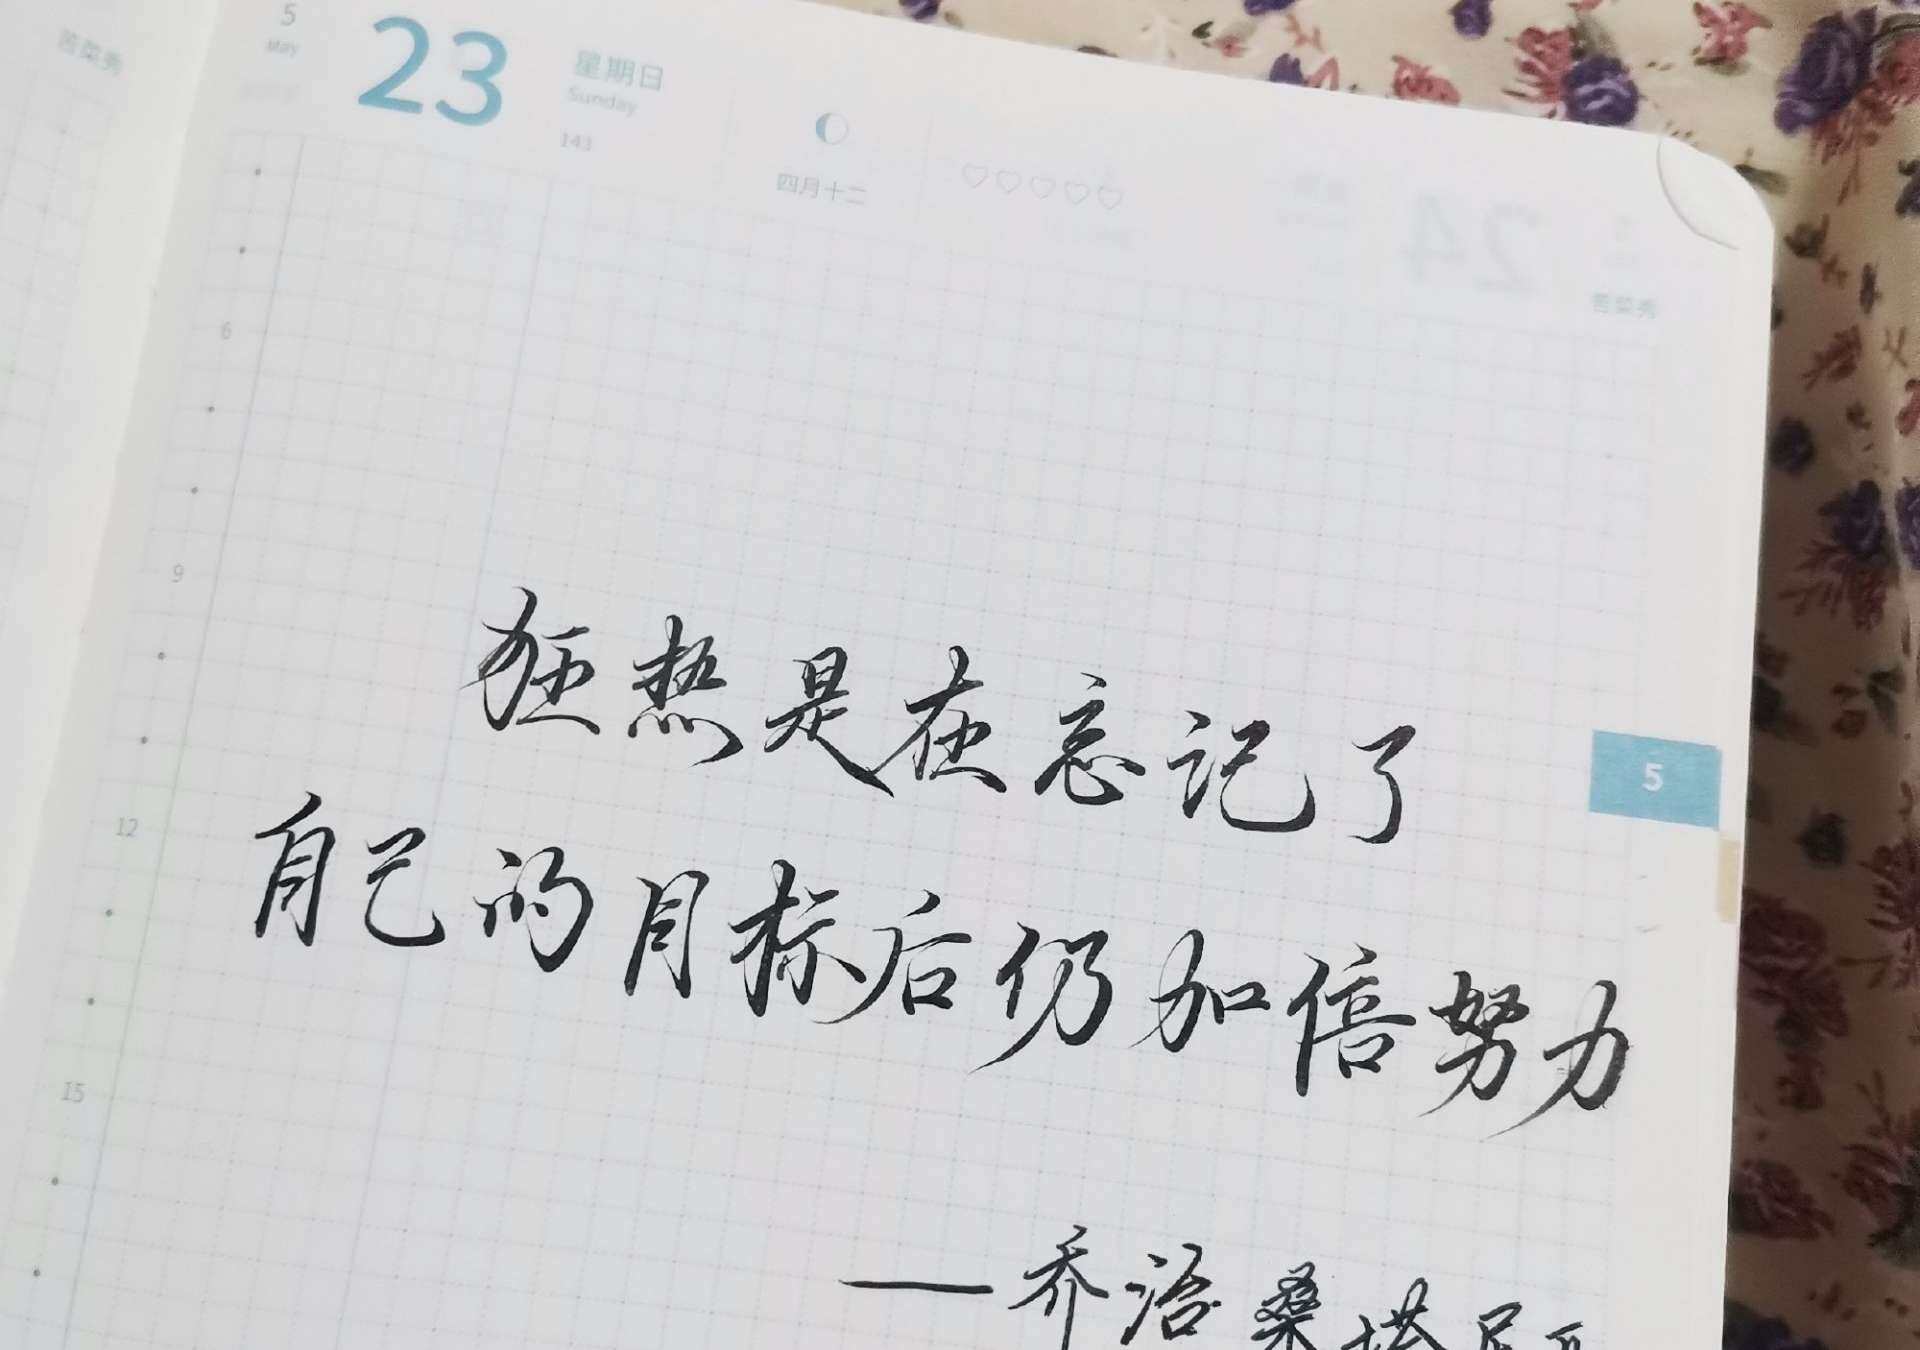 5
May
23
星期日
Sunday
143
四月十二
苦菜秀
24
苦菜秀
6
9
12
15
5
狂热是在忘记了
自己的目标后仍加倍努力
—乔治桑塔尼亚